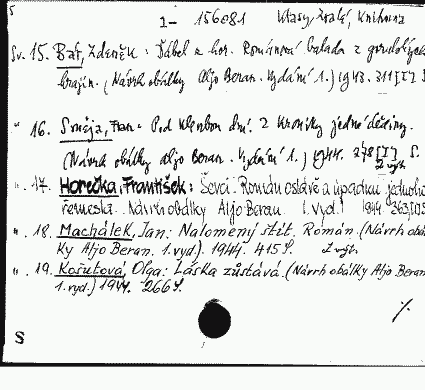 5
1- 156081 Klasy zralé, knihovna
Sv. 15. Bař, Zdeněk: Ďábel z hor. Románová balada z
krajin. (Návrh obálky Aljo Beran. Vydání 1.) 1943. 311 [I] S.
" 16. Směja, Fran: Pod klenbou dní. Z kroniky jedné dědiny.
(Návrh obálky Aljo Beran. Vydání 1.) 1944. 278 [I] S.
2 výt.
" 17. Horečka, František: Ševci. Román o slávě a úpadku jednoho
řemesla. Návrh obálky Aljo Beran. 1. vyd.) 1944. 363,
" 18. Machálek, Jan: Nalomený štít. Román. (Návrh obál
ky Aljo Beran. 1. vyd.). 1944. 415 S. 2 výt.
" 19. Košutová, Olga: Láska zůstává. (Návrh obálky Aljo Beran
1. vyd.) 1944. 266 S.
./.
S